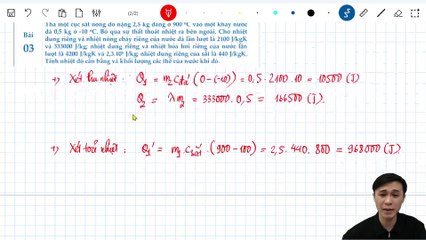 (2/2)
Thả một cục sắt nóng đỏ nặng 2,5 kg đang ở 900 °C vào một khay nước
Bài
03
đá 0,5 kg ở -10 °C. Bỏ qua sự thất thoát nhiệt ra bên ngoài. Cho nhiệt
dung riêng và nhiệt nóng chảy riêng của nước đá lần lượt là 2100 J/kgK
và 333000 J/kg; nhiệt dung riêng và nhiệt hóa hơi riêng của nước lần
lượt là 4200 J/kgK và 2,3.10⁶ J/kg; nhiệt dung riêng của sắt là 440 J/kgK.
Tính nhiệt độ cân bằng và khối lượng các thể của nước khi đó.
+) Xét thu nhiệt : Q₁ = m₂ (0-(-10)) = 0,5 . 2100 . 10 = 10500 (J)
Q₂ = λm₂ = 333000 . 0,5 = 166500 (J).
+) Xét toả nhiệt : Q₁' = m₁ . c sắt . (900 - 100) = 2,5 . 440 . 800 = 968000 (J).